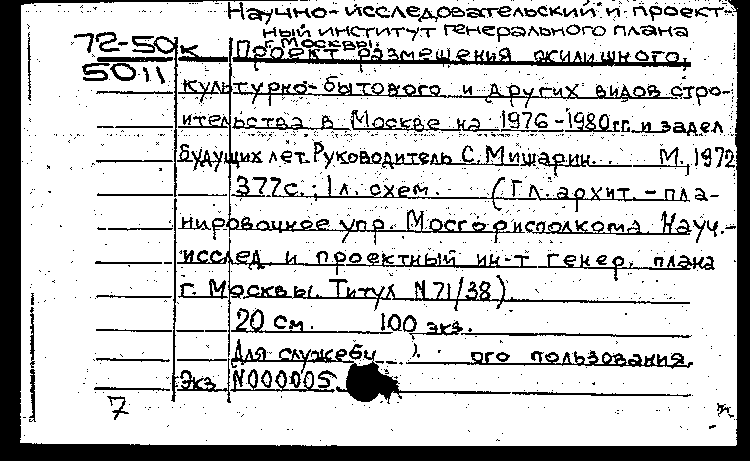 Научно-исследовательский и проект-
ный институт генерального плана
г. Москвы.
72-50к Проект размещения жилишного,
5011
культурно-бытового и других видов стро-
ительства в Москве на 1976-1980гг. и задел
будущих лет. Руководитель С. Мишарин. М., 1972
377с.; 1 л. схем. (Гл. архит.-пла-
нировочное упр. Мосгорисполкома. Науч.-
исслед. и проектный ин-т генер. плана
г. Москвы. Титул N 71/38).
20 см. 100 экз.
Для служебн ). ого пользования.
Экз N000005
7